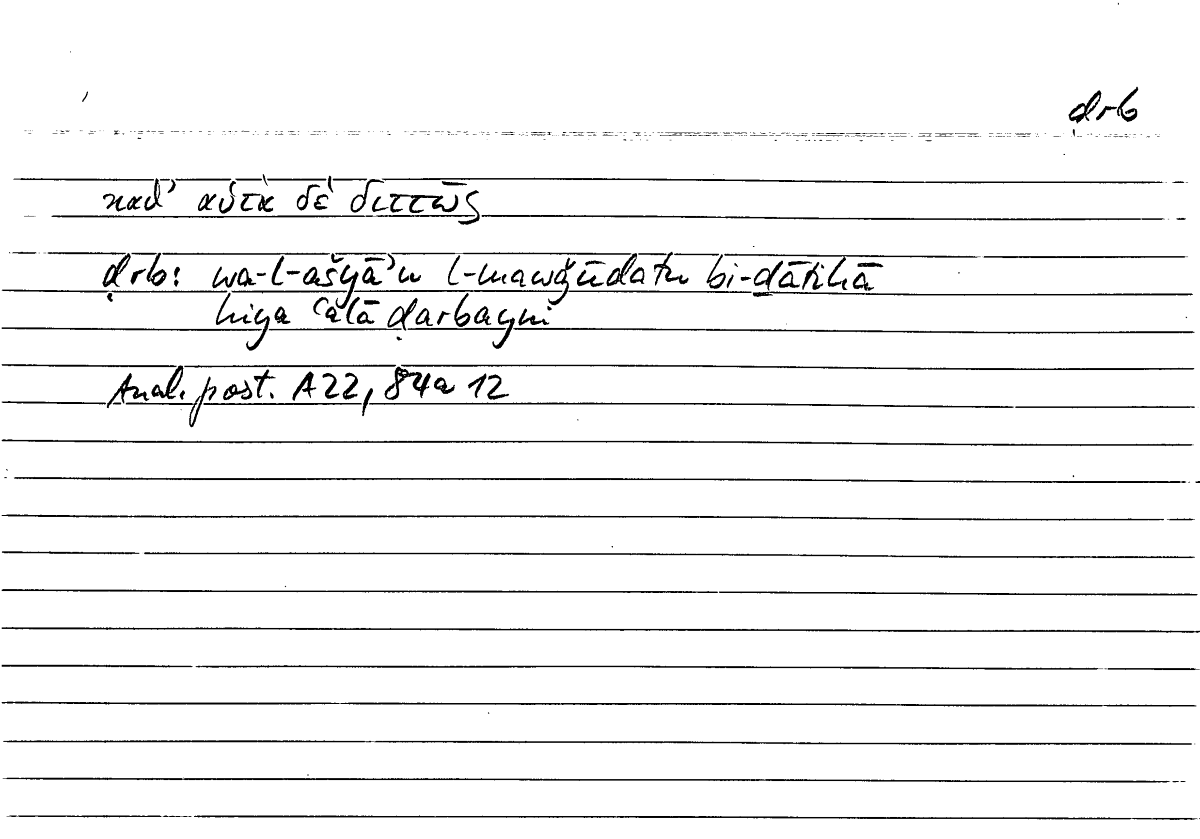 ḍrb
καθ' αὑτὰ δὲ διττῶς
ḍrb: wa-l-ašyāʾu l-mawǧūdatu bi-ḏātihā
hiya ʿalā ḍarbayni
Anal. post. A 22, 84a 12